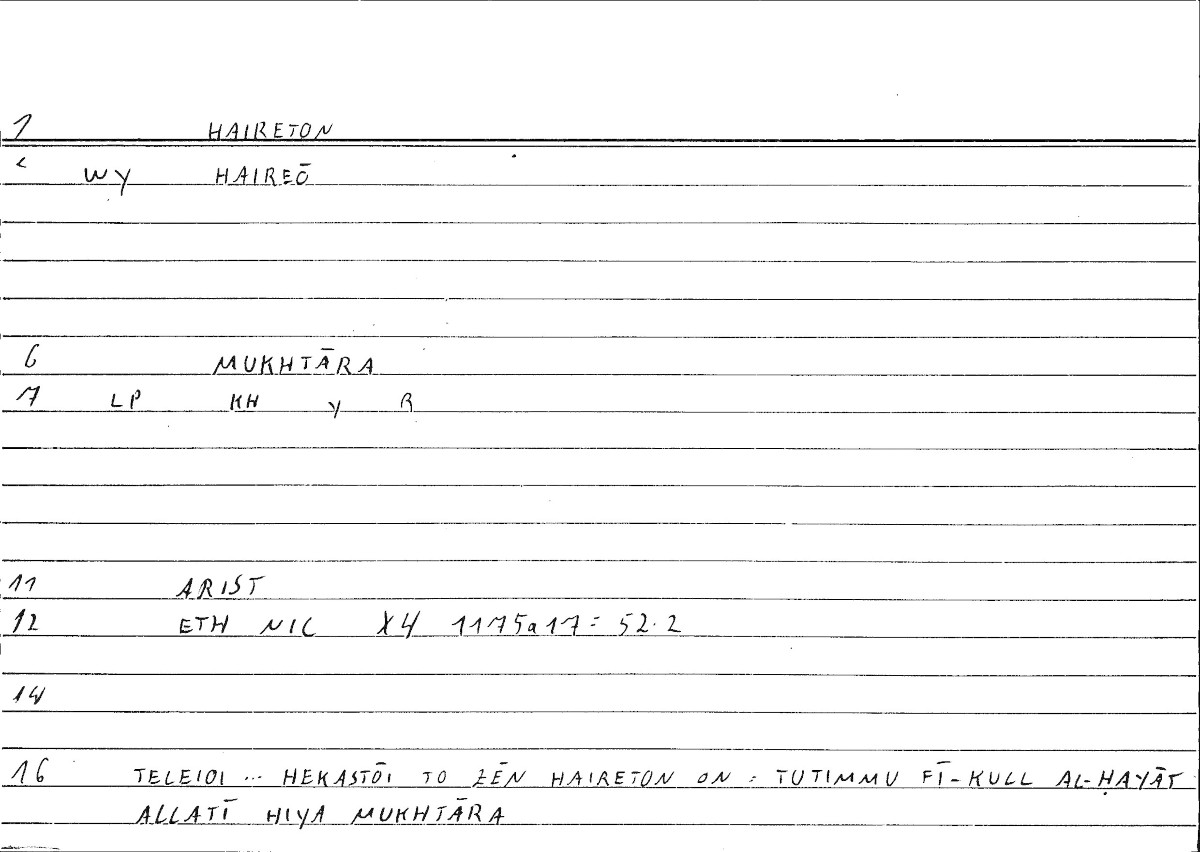 1 HAIRETON
WY HAIREŌ
6 MUKHTĀRA
7 LP KH Y R
11 ARIST
12 ETH NIC X4 1175a17 = 52.2
14
16 TELEIOI ... HEKASTŌI TO ZĒN HAIRETON ON : TUTIMMU FĪ-KULL AL-ḤAYĀT
ALLATĪ HIYA MUKHTĀRA